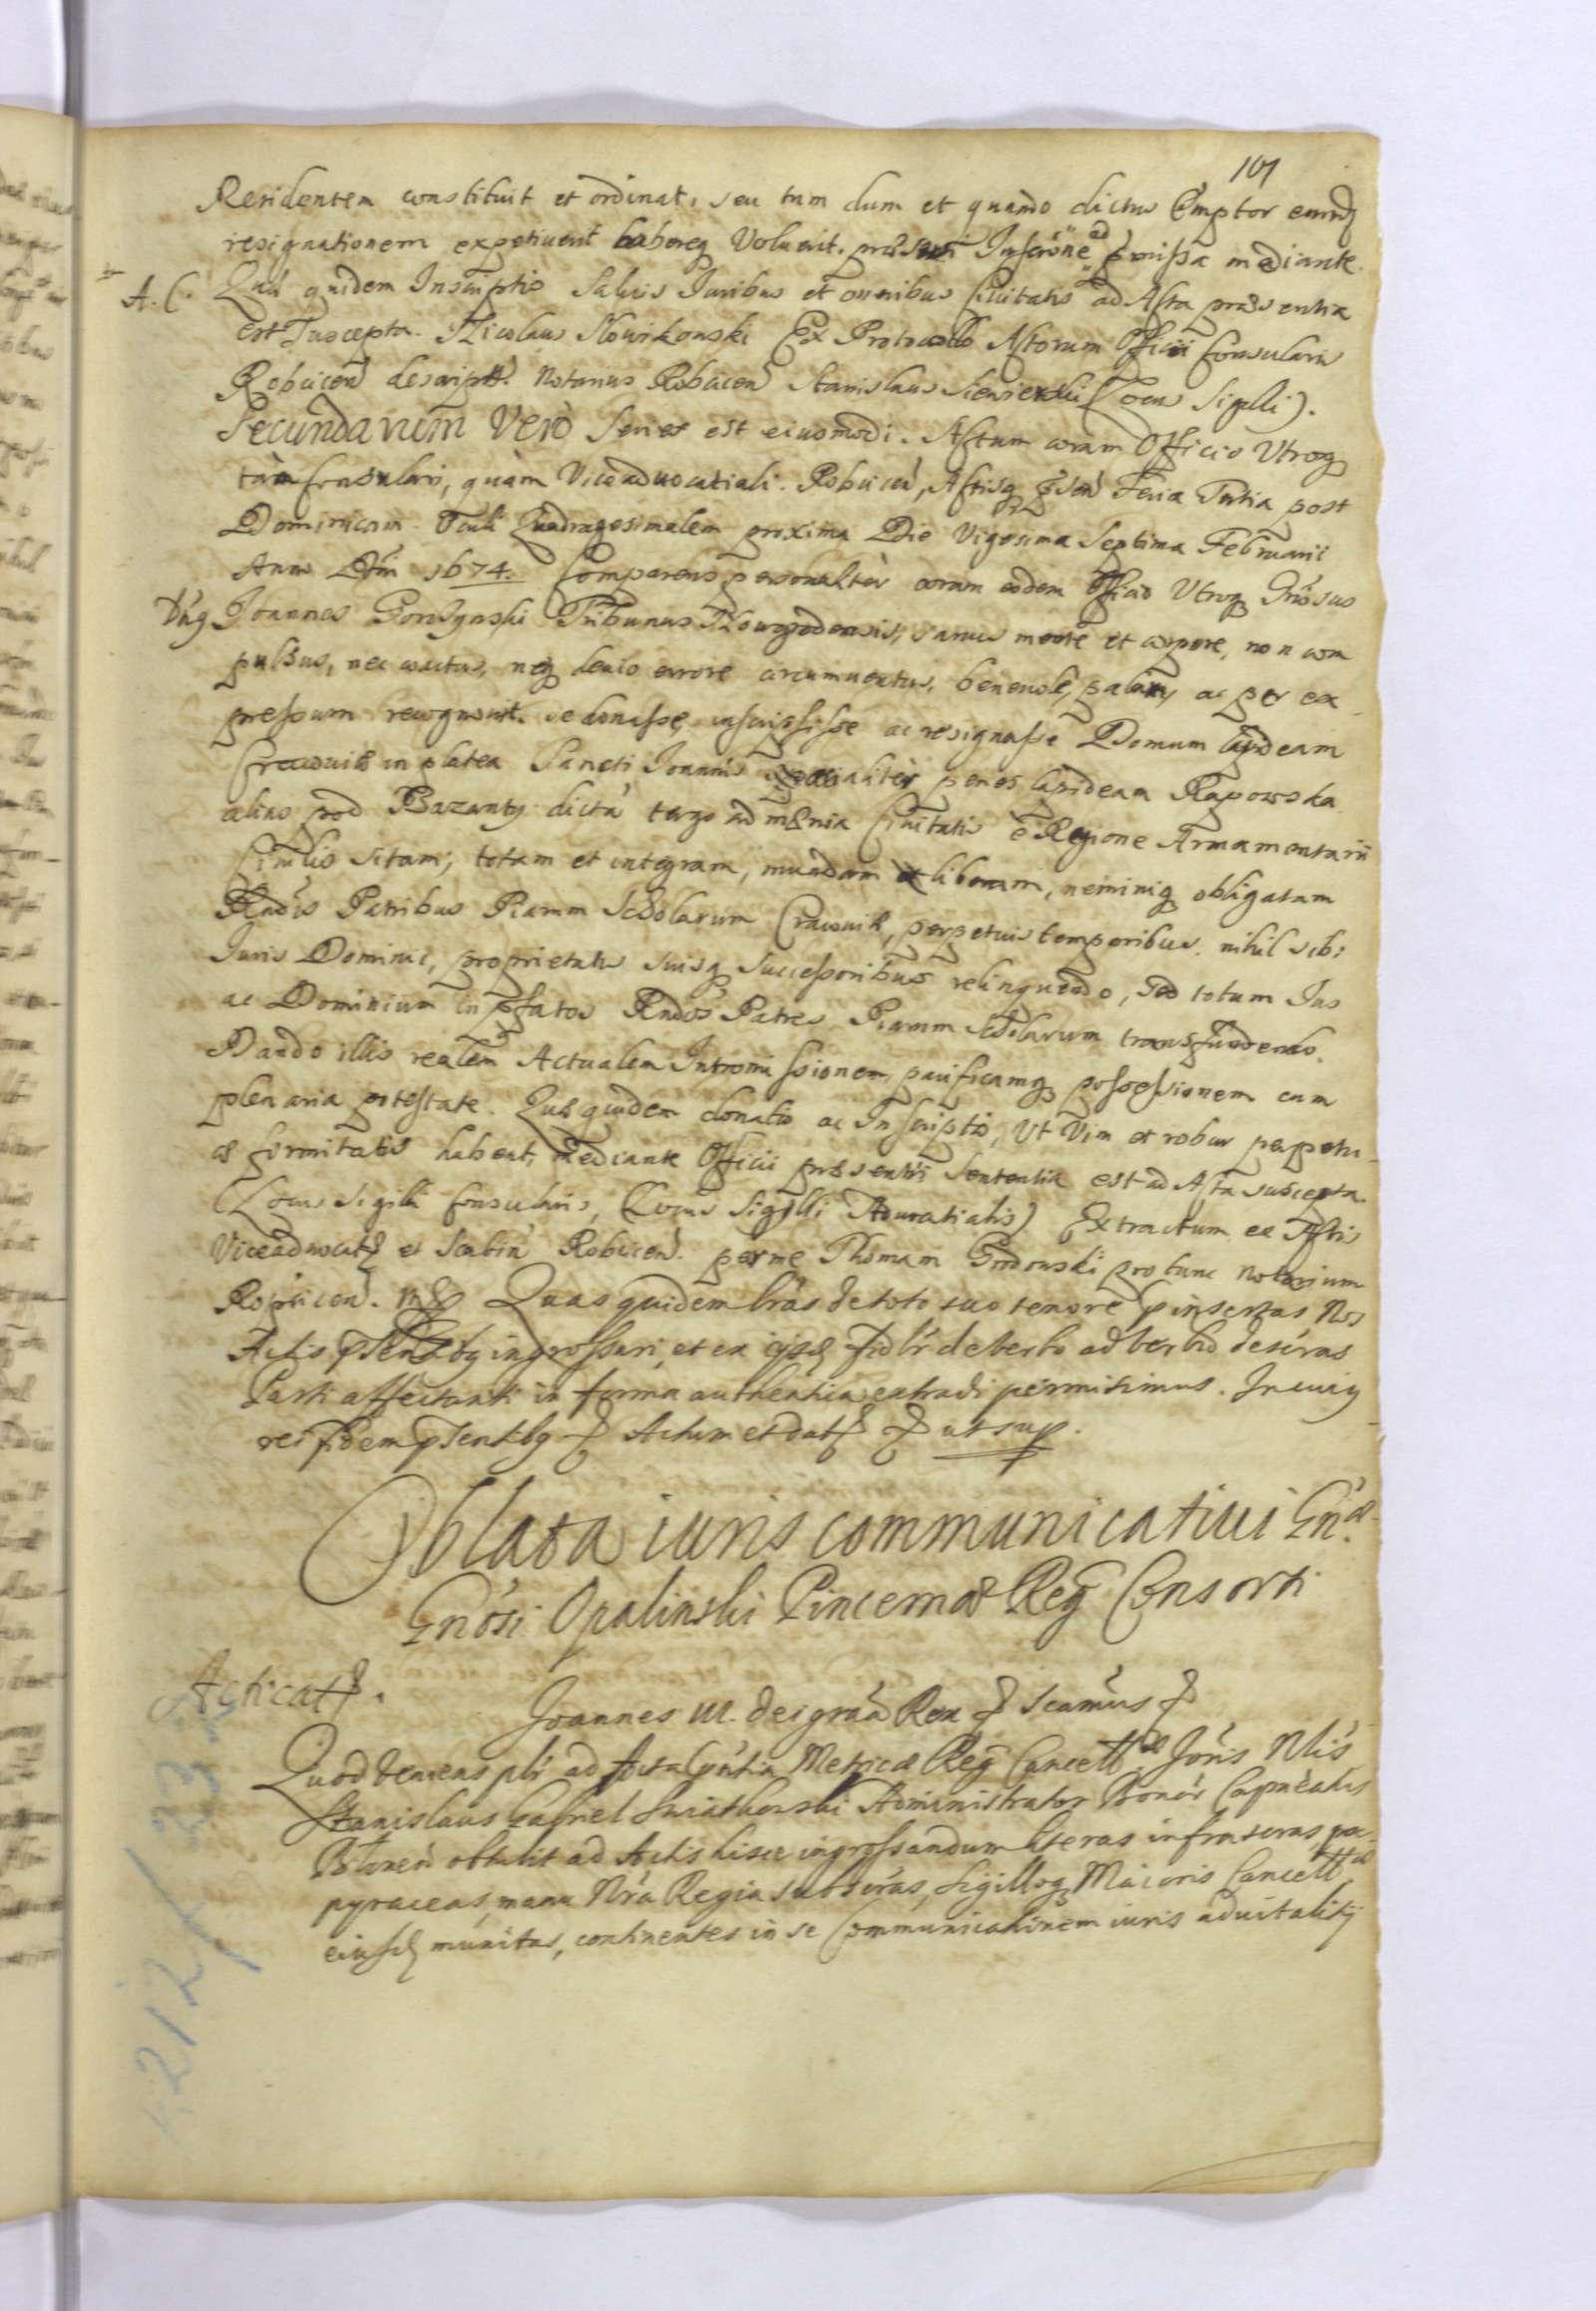 101
Residentem constituit et ordinat, seu tum dum et quando dictus Emptor eamd
resignationem expetiuerit habereq Voluerit. præsenti Inscrone ad præmissa mediante.
A. C. Quæ quidem Inscriptio Saluis Iuribus et oneribus Ciuitatis ad Acta præsentia
est Suscepta. Nicolaus Nowikonski Ex Protocollo Actorum Officii Consularis
Robcicen descript. Notarius Robcicen Stanislaus Siewierski (Locus Sigilli).
Secundarum Verò Series est eiusmodi. Actum coram Officio Vtroq
tàm Consulari, quàm Viceaduocatiali. Robcicen, Actisq præsen Feria Tertia post
Dominicam Oculi Quadragesimalem proxima Die Vigesima Septima Februarii
Anno Dni 1674. Comparens personaliter coram eodem Officio Vtroq Gnosus
Vrg Joannes Gorczynski Tribunus Nowogrodensis, sanus mente et corpore, non com
pulsus, nec coactus, neq deuio errore circumuentus, beneuole, palam, ac per ex
pressum recognouit. se donasse, inscripsisse ac resignasse Domum lapideam
Cracouiæ in platea Sancti Joannis specialiter penes lapideam Rapowska
alias pod Bazanty dicta tergo ad mænia Ciuitatis è Regione Armamentarii
Ciuilis sitam, totam et integram, mundam et liberam, neminiq obligatam
Rndis Patribus Piarum Scholarum Cracouiæ, perpetuis temporibus. nihil sibi
Iuris Dominii, proprietatis suisq Successoribus relinquendo, sed totum Ius
ac Dominium in pfatos Rndos Patres Piarum Scholarum transfundendo.
Dando illis realem Actualem Intromissionem, pacificamq possessionem cum
plenaria potestate. Quæ quidem donatio ac Inscriptio, Vt Vim et robur perpetu
æ firmitatis habeat, mediante Officii præsentis Sententia est ad Acta suscepta.
(Locus Sigilli Consularis, (Locus Sigilli Aduocatialis) Extractum ex Actis
Viceaduocat et Scabin Robcicen. per me Thomam Grodowski pro tunc Notarium
Ropcicen. mp Quas quidem lras de toto suo tenore pinsertas Nos
Actis psentbg ingrossari, et ex ijsd fidlr de verbo ad verbũ descras
Parti affectanti in forma authentica extradi permisimus. In cuiq
rei fidem psentbg Actum et dat ut sup.
Oblata iuris communicatiui Gnæ.
Gnosi Opalinski Pincernæ Reg Consorti
Acticat.
Joannes III. Dei graa Rex Scamus
Quod veniens plr ad Acta psntia Metricæ Reg Cancellæ Joris Nlis
Stanislaus Gabriel Swiatkowski Administrator Bonor Capnealis
Blonen obtulit ad Actis hisce ingrossandum literas infrascras pa-
pyraceas, manu Nra Regia subscras, Sigilloq Maioris Cancellæ
eiusd munitas, continentes in se Communicationem iuris aduitalitij